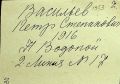 1953
Васильев
Петр Степанович
1916
Н Водопой
2 Линия № 17